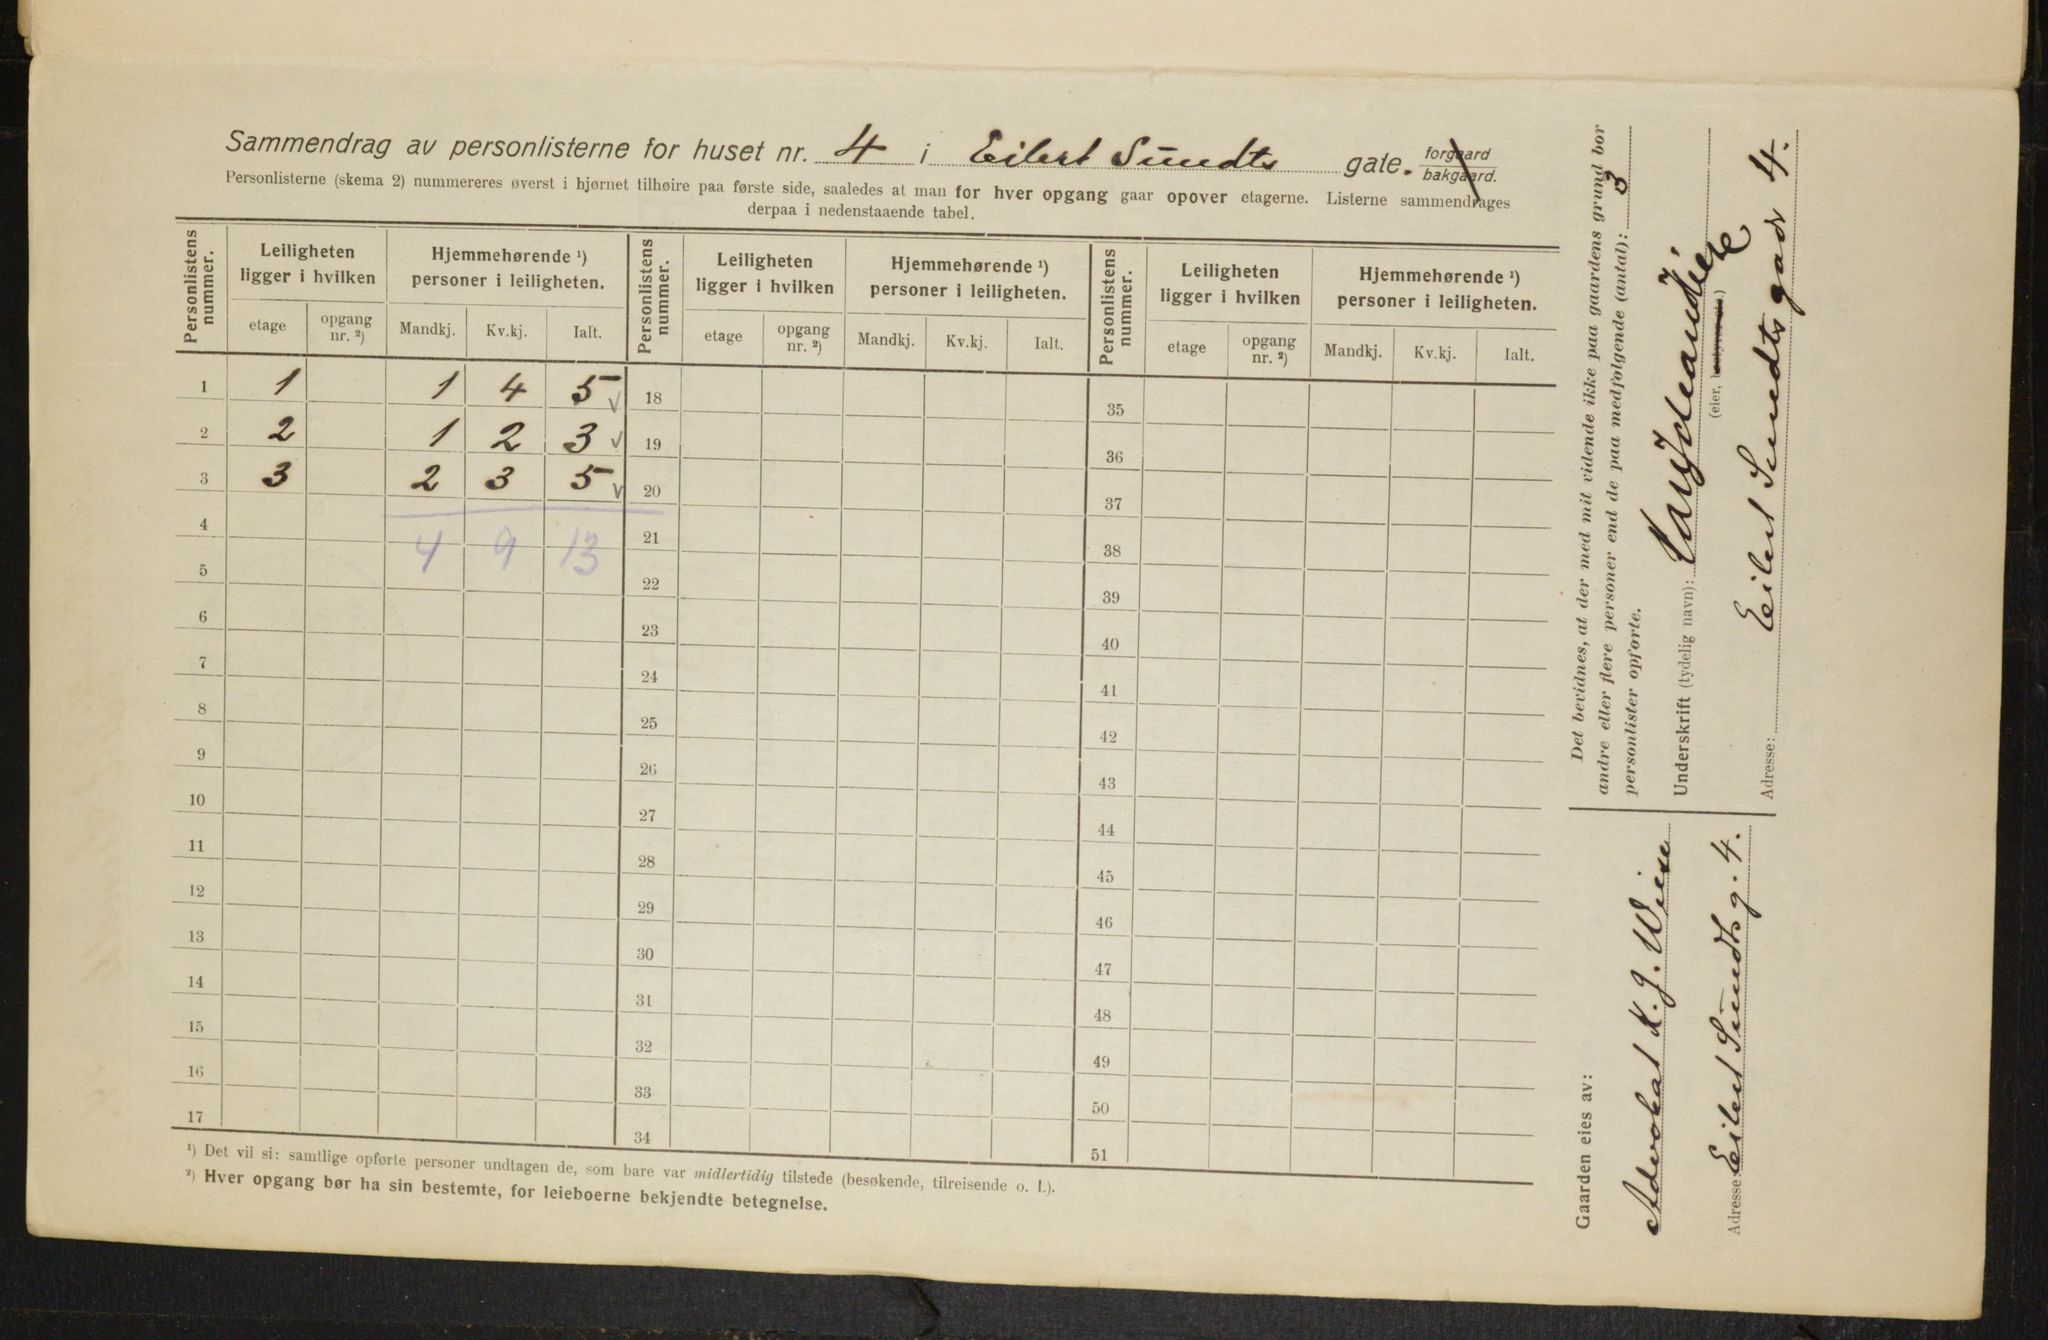 Sammendrag av personlisterne for huset nr. 4 i Eilert Sundts gate. forgaard bakgaard.
Personlisterne (skema 2) nummereres øverst i hjørnet tilhøire paa første side, saaledes at man for hver opgang gaar opover etagerne. Listerne sammendrages
derpaa i nedenstaaende tabel.
Personlistens nummer. Leiligheten ligger i hvilken Hjemmehørende ¹) personer i leiligheten. Personlistens nummer. Leiligheten ligger i hvilken Hjemmehørende ¹) personer i leiligheten. Personlistens nummer. Leiligheten ligger i hvilken Hjemmehørende ¹) personer i leiligheten.
etage opgang nr. ²) Mandkj. Kv.kj. Ialt. etage opgang nr. ²) Mandkj. Kv.kj. Ialt. etage opgang nr. ²) Mandkj. Kv.kj. Ialt.
1 1 1 4 5 v 18 35
2 2 1 2 3 v 19 36
3 3 2 3 5 v 20 37
4 4 9 13 21 38
5 22 39
6 23 40
7 24 41
8 25 42
9 26 43
10 27 44
11 28 45
12 29 46
13 30 47
14 31 48
15 32 49
16 33 50
17 34 51
¹) Det vil si: samtlige opførte personer undtagen de, som bare var midlertidig tilstede (besøkende, tilreisende o. l.).
²) Hver opgang bør ha sin bestemte, for leieboerne bekjendte betegnelse.
Det bevidnes, at der med mit vidende ikke paa gaardens grund bor
andre eller flere personer end de paa medfølgende (antal): 3
personlister opførte.
Underskrift (tydelig navn):
(eier,
Adresse: Eilert Sundts gade 4.
Gaarden eies av:
Advokat K. J. Wiese
Adresse Eilert Sundts g. 4.